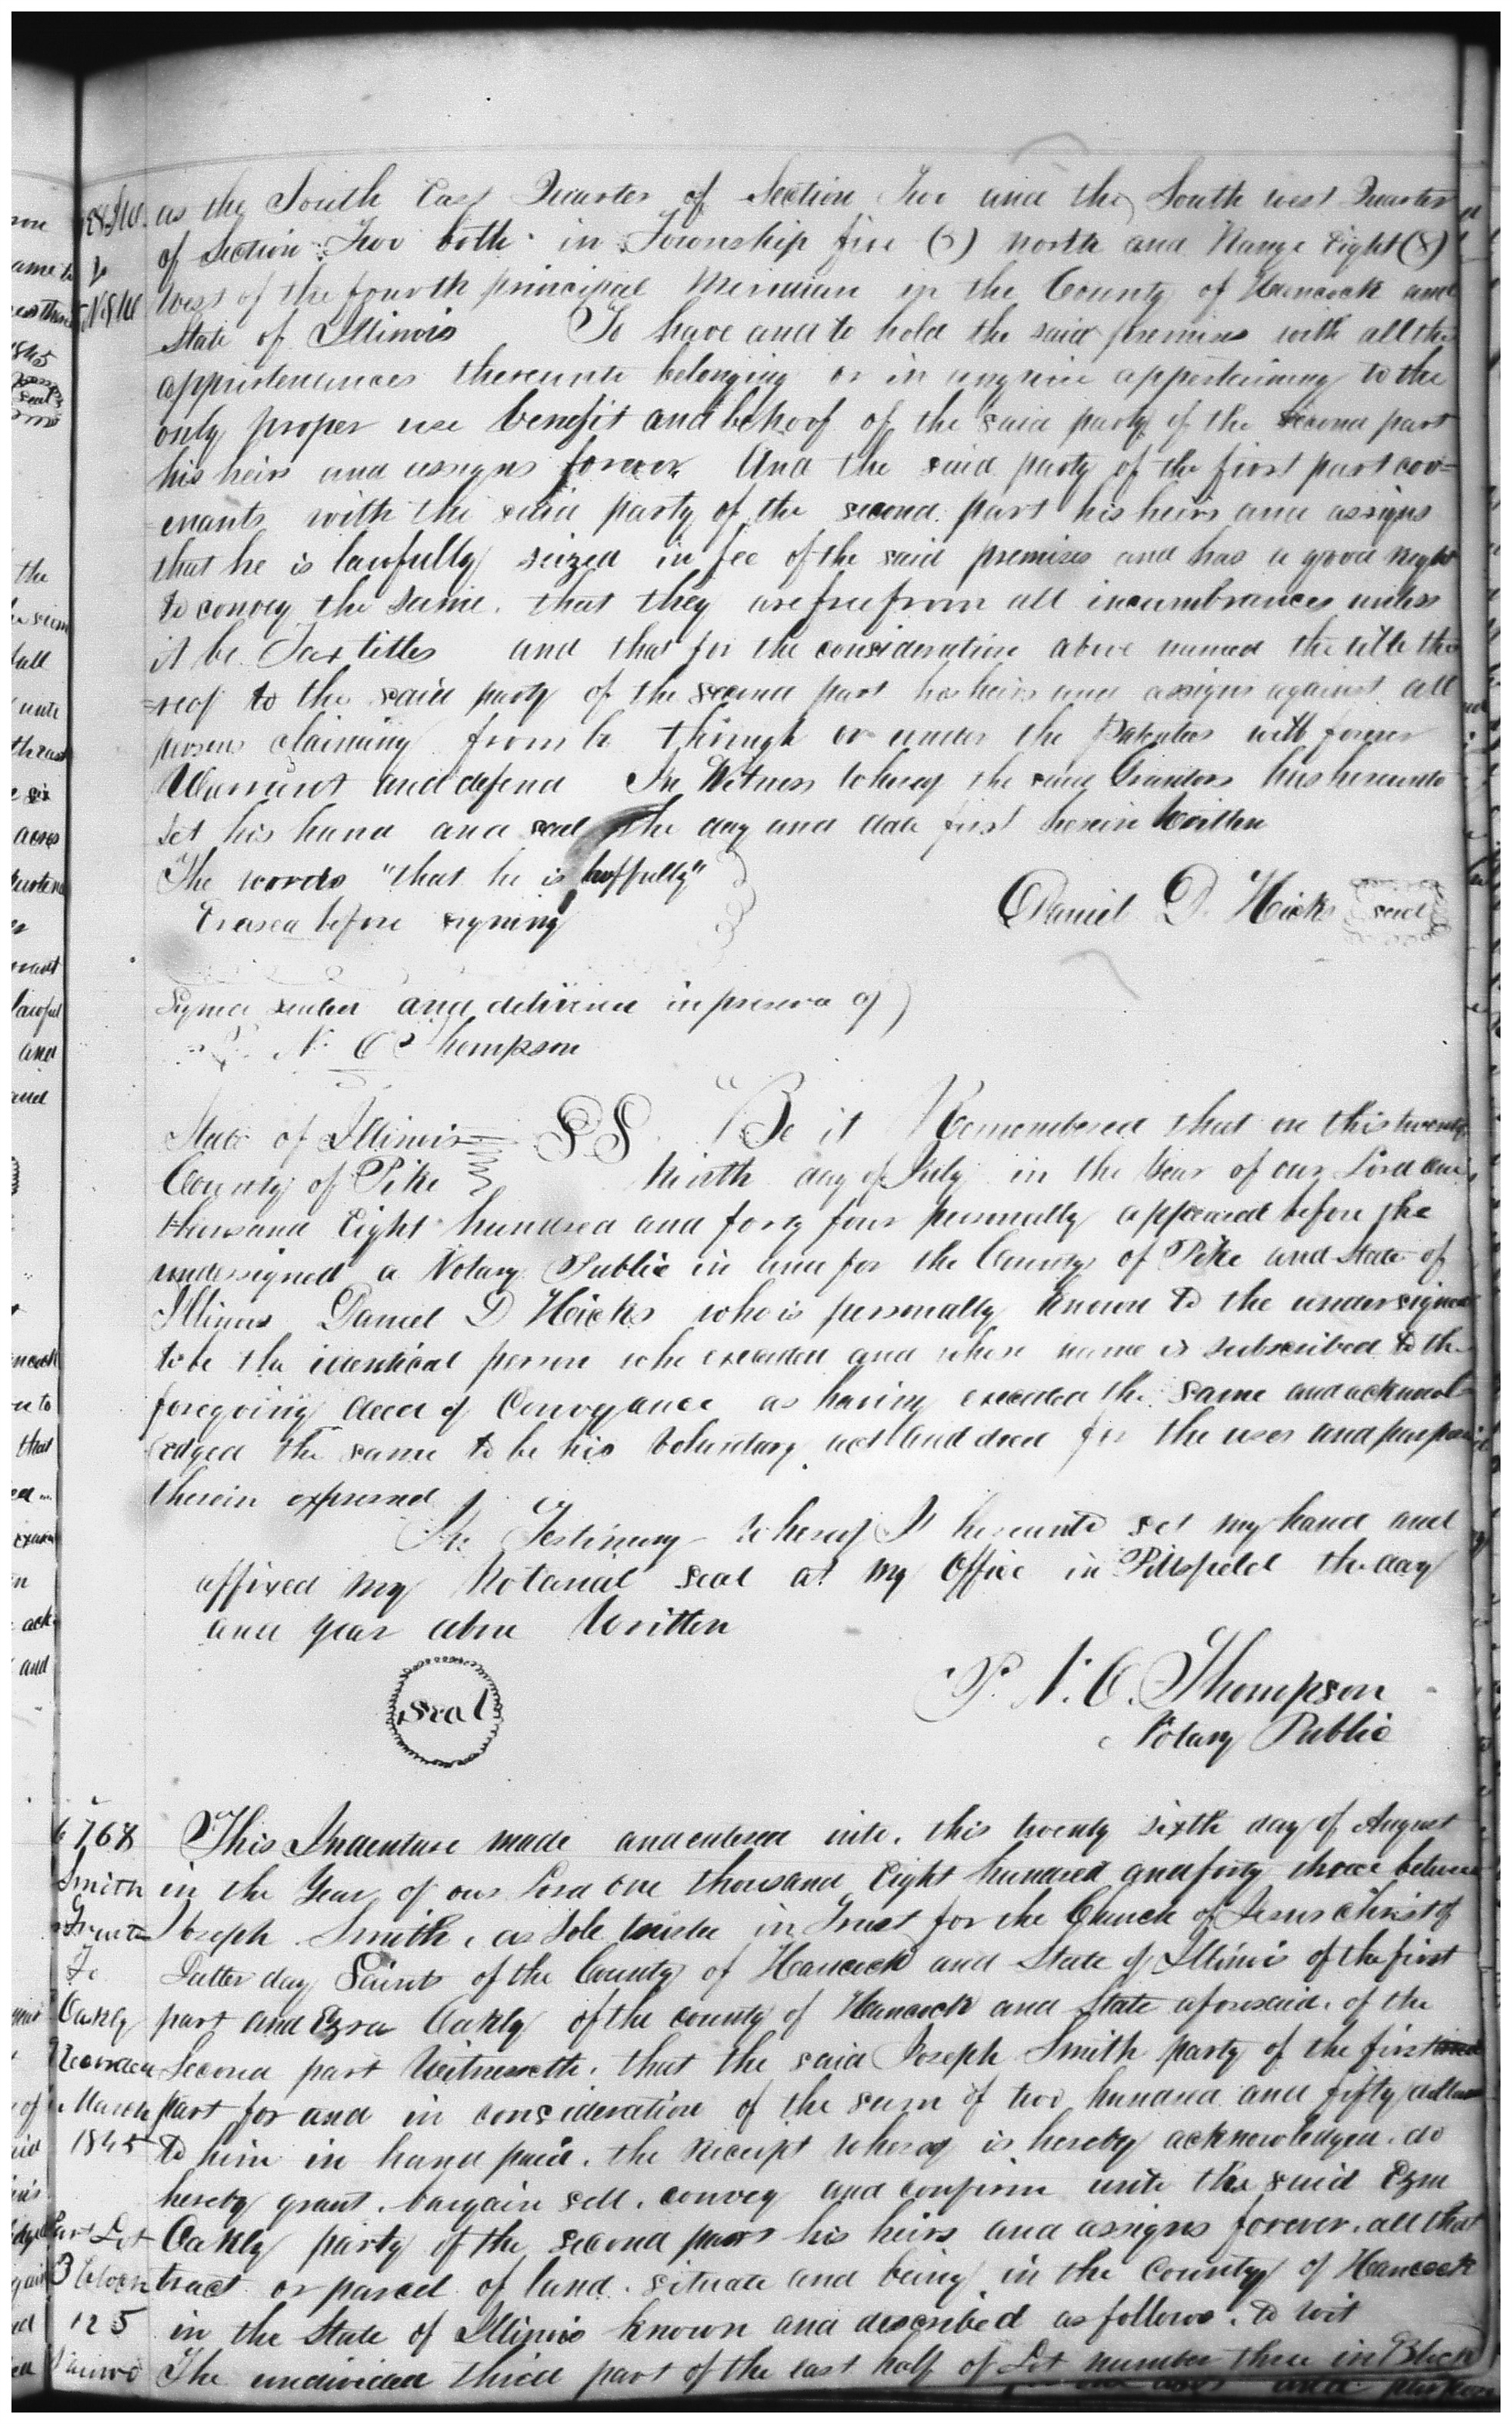 as the South East Quarter of Section Two and the South west Quarter
of Section Two both in Township five (5) north and Range Eight (8)
West of the fourth principal Meridian in the County of Hancock and
State of Illinois To have and to hold the said premises with all the
appurtenances thereunto belonging or in anywise appertaining to the
only proper use benefit and behoof of the said party of the second part
his heirs and assigns forever. And the said party of the first part cov=
=enants with the said party of the second part his heirs and assigns
that he is lawfully seized in fee of the said premises and has a good right
to convey the same. that they are free from all incumbrances unless
it be Tax titles and that for the consideration above named the title the
=reof to the said party of the second part his heirs and assigns against all
persons claiming from by through or under the Patentee will forever
Warrant and defend In Witness Whereof the said Grantor has hereunto
set his hand and seal the day and date first herein Written
The words "that he is lawfully"
Erased before signing
Daniel D. Hicks seal
Signed sealed and delivered in presence of)
P. N. O Thompson
State of Illinois SS. Be it Remembered that on this twenty
County of Pike Ninth day of July in the Year of our Lord one
thousand Eight hundred and forty four personally appeared before the
undersigned a Notary Public in and for the County of Pike and State of
Illinois Daniel D Hicks who is personally known to the undersigned
to be the identical person who executed and whose name is subscribed to the
foregoing deed of Conveyance as having executed the same and acknowl
edged the same to be his Voluntary act and deed for the uses and purposes
therein expressed
In Testimony Whereof I hereunto set my hand and
affixed my Notarial seal at my Office in Pittsfield the day
and year above Written
Seal
P. N. O. Thompson
Notary Public
6768
Smith
Trustee
To
Oakly
Recorded
March
1845
Part Lot
3 block
125
Nauvoo
This Indenture made and entered into. this twenty sixth day of August
in the Year of our Lord one thousand Eight hundred and forty three between
Joseph Smith, as Sole trustee in Trust for the Church of Jesus Christ of
Latter day Saints of the County of Hancock and State of Illinois of the first
part and Ezra Oakly of the county of Hancock and State aforesaid. of the
Second part Witnesseth. that the said Joseph Smith party of the first
part for and in consideration of the sum of two hundred and fifty dollars
to him in hand paid. the receipt whereof is hereby acknowledged. do
hereby grant. bargain sell. convey and confirm unto the said Ezra
Oakly party of the second part his heirs and assigns forever. all that
tract or parcel of land. situate and being in the County of Hancock
in the State of Illinois known and described as follows. to wit
The undivided third part of the east half of Lot number three in Block